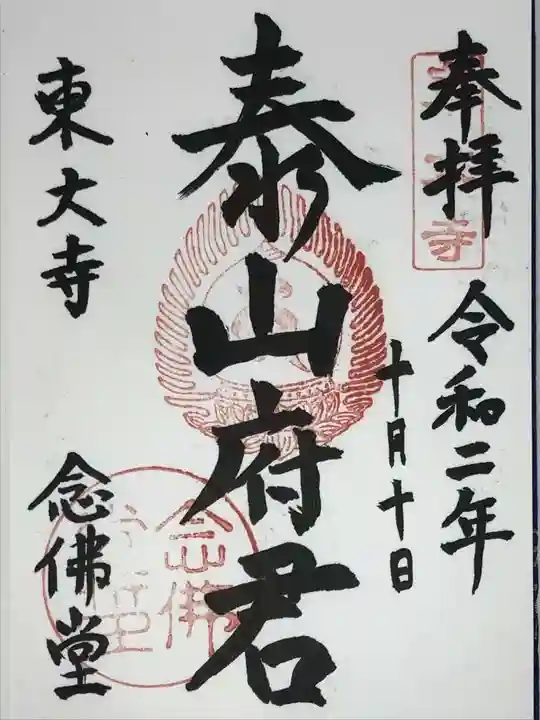 奉拝
令和二年
十月十日
泰山府君
東大寺
念佛堂
寺
念佛